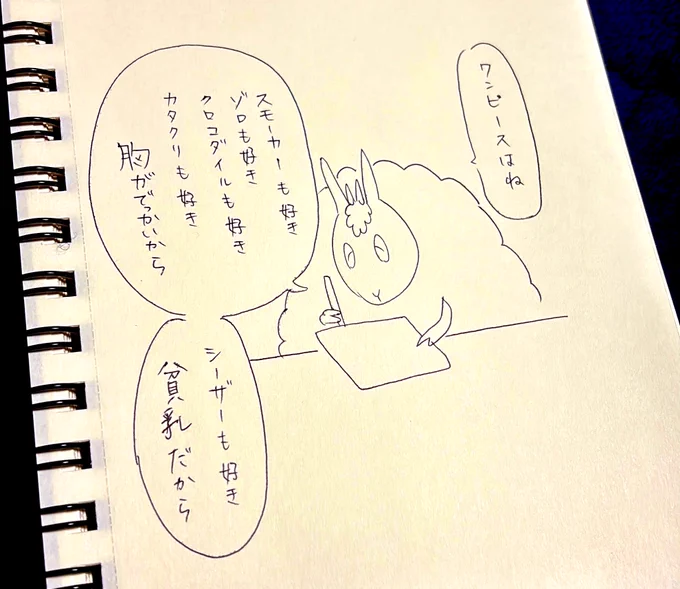 ワンピースはね
スモーカーも好き
ゾロも好き
クロコダイルも好き
カタクリも好き
胸がでっかいから
シーザーも好き
貧乳だから